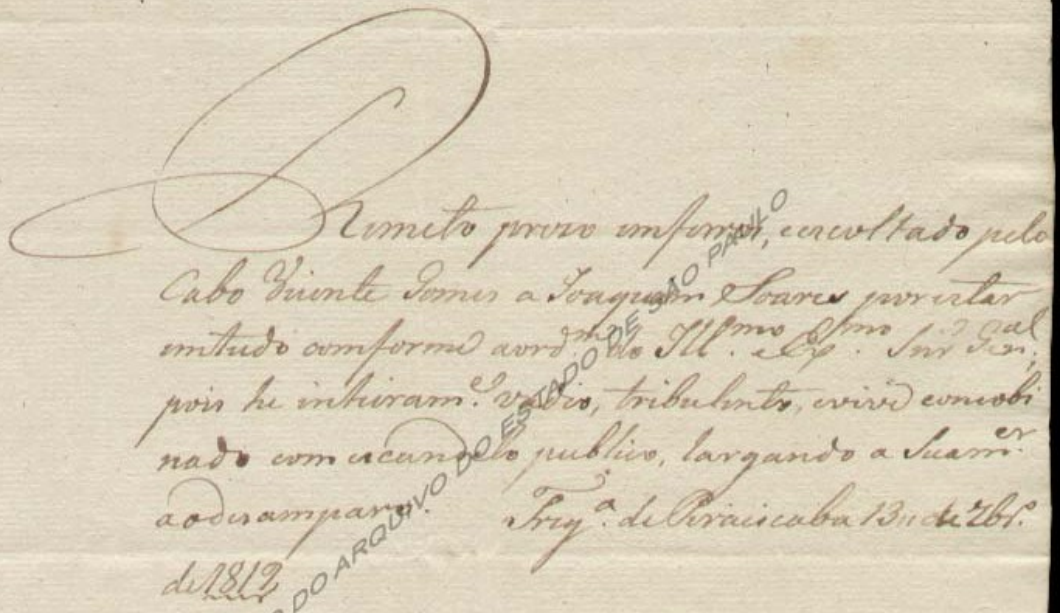 Remeto prezo emferros, eescoltado pelo
Cabo Vicente Gomes a Joaquim Soares por estar
emtudo comforme aord.m do Ill.mo e Ex.mo Snr Gen.al,
pois he inteiram.e vadio, tribulento, evive concobi
nado com escandelo publico, largando a Suam.er
aodesamparo. Freg.a de Piraicicaba 13 de 7br.o
de 1812
DO ARQUIVO DO ESTADO DE SÃO PAULO